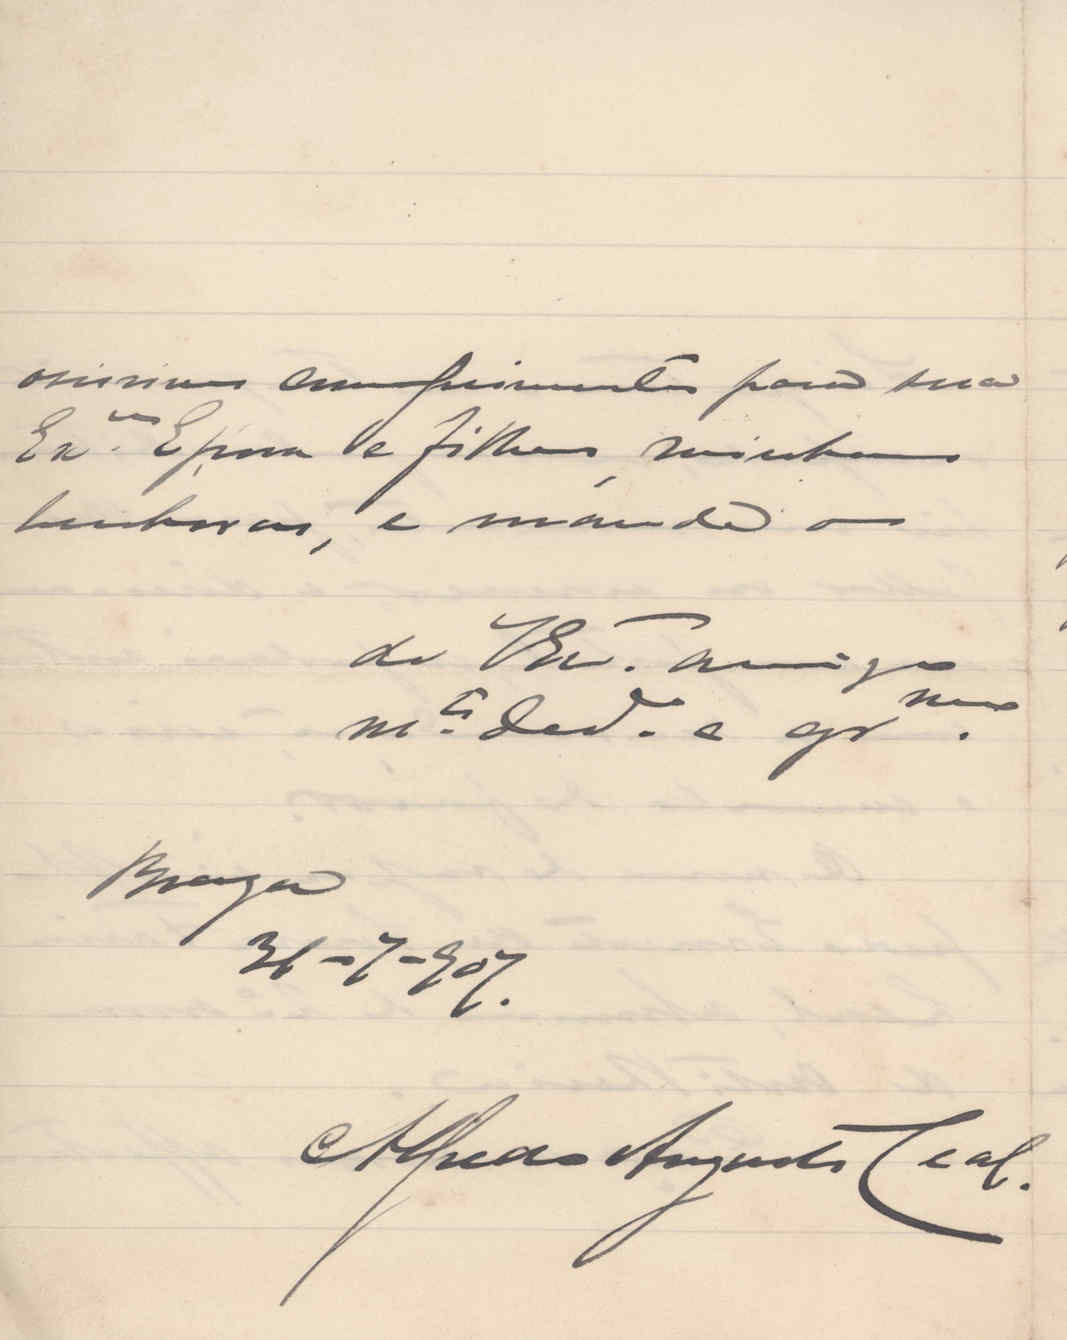 cumprimentos para sua
Ex.ma Espoza e filhas, minhas
senhoras, e mande o
de VEx. amigo
m.to ded.o e gr.mo
Braga
31-7-907.
Alfredo Augusto Leal.